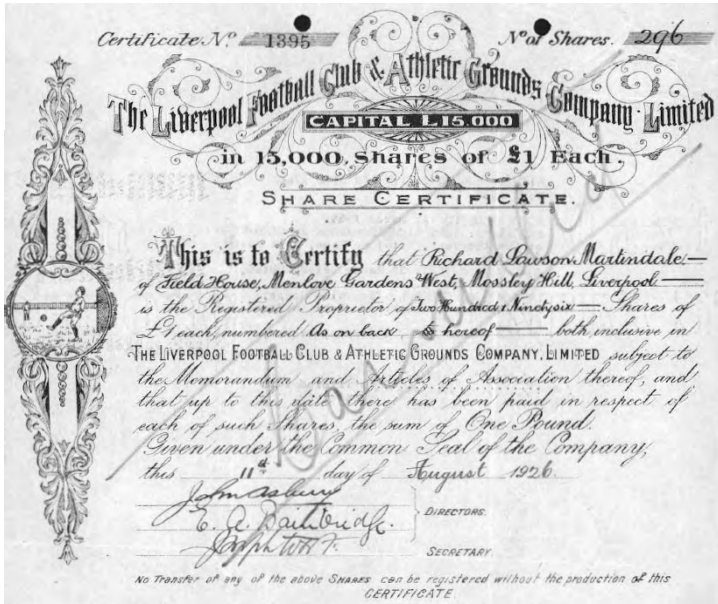 Certificate No. 1395 No of Shares. 296
The Liverpool Football Club & Athletic Grounds Company Limited
CAPITAL £15.000
in 15,000 Shares of £1 Each.
SHARE CERTIFICATE.
This is to Certify that Richard Lawson Martindale
of Field House, Menlove Gardens West, Mossley Hill, Liverpool
is the Registered Proprietor of Two Hundred & Ninety six Shares of
£1 each, numbered As on back hereof both inclusive in
THE LIVERPOOL FOOTBALL CLUB & ATHLETIC GROUNDS COMPANY, LIMITED subject to
the Memorandum and Articles of Association thereof, and
that up to this date there has been paid in respect of
each of such Shares, the sum of One Pound.
Given under the Common Seal of the Company,
this 11th day of August 1926
John Asbury
E. A. Bainbridge.
DIRECTORS.
SECRETARY.
No Transfer of any of the above SHARES can be registered without the production of this
CERTIFICATE.